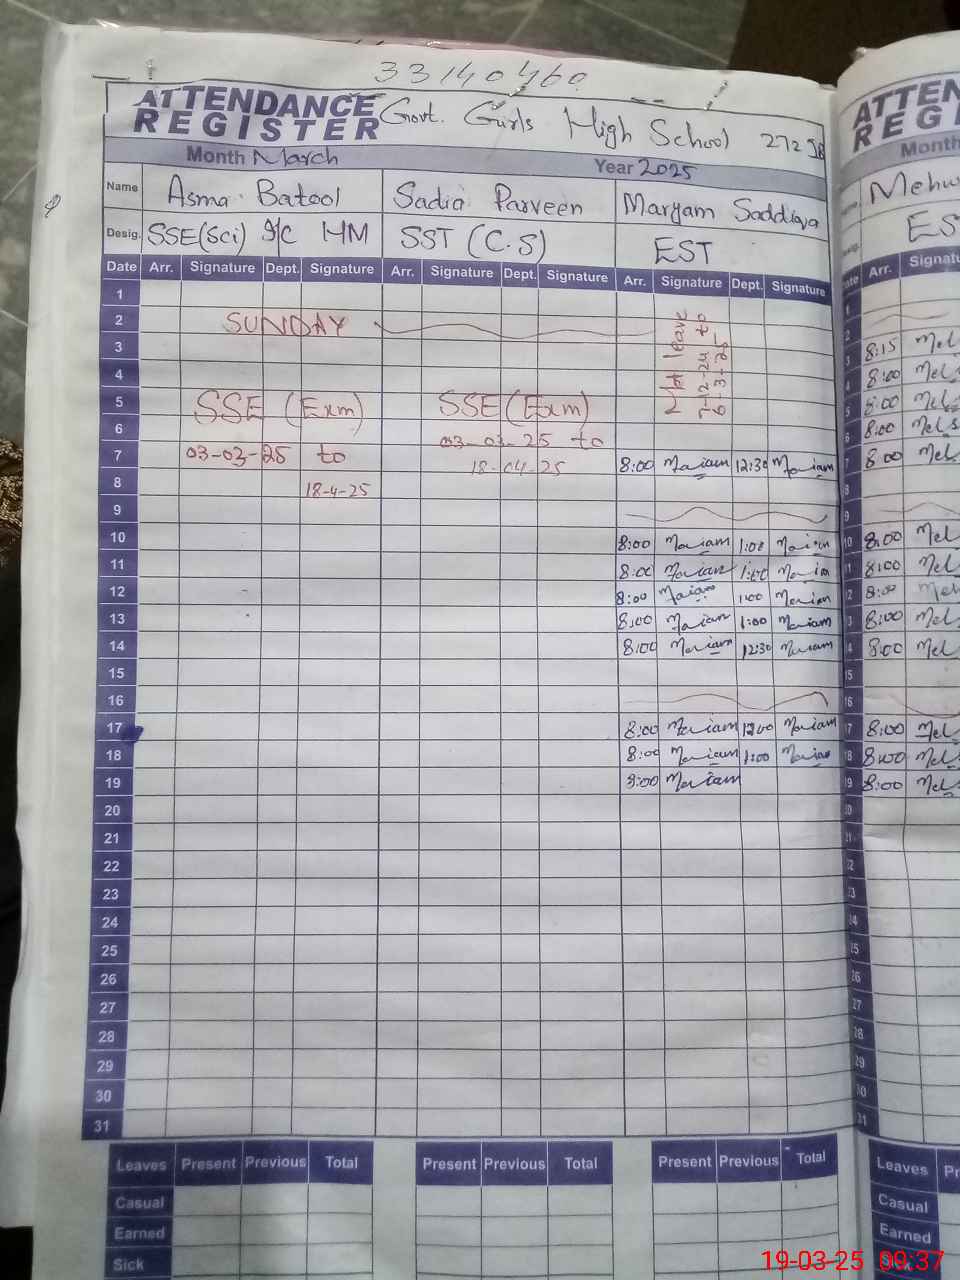 33140460
ATTENDANCE REGISTER Govt. Gurls High School 272 JB
Month March Year 2025
Name Asma Batool Sadia Parveen Maryam Saddiqva
Desig. SSE(Sci) I/C HM SST (C.S) EST
Date Arr. Signature Dept. Signature Arr. Signature Dept. Signature Arr. Signature Dept. Signature
1
2 SUNDAY
3
4
5 SSE (Exm) SSE (Exm)
6 03-03-25 to
7 03-03-25 to 18-04-25 8:00 Mariam 12:30 Mariam
8 18-4-25
9
10 8:00 Mariam 1:00 Mariam
11 8:00 Mariam 1:00 Mariam
12 8:00 Mariam 1:00 Mariam
13 8:00 Mariam 1:00 Mariam
14 8:00 Mariam 12:30 Mariam
15
16
17 8:00 Mariam 12:00 Mariam
18 8:00 Mariam 1:00 Mariam
19 8:00 Mariam
20
21
22
23
24
25
26
27
28
29
30
31
leave
Leaves Present Previous Total Present Previous Total Present Previous Total
Casual
Earned
Sick
ATTEN
REG
Month
Mehw
Desig. EST
Date Arr. Signatu
1
2
3 8:15 Mel
4 8:00 Mel
5 8:00 Mel
6 8:00 Mel
7 8:00 Mel
8
9
10 8:00 Mel
11 8:00 Mel
12 8:00 Mel
13 8:00 Mel
14 8:00 Mel
15
16
17 8:00 Mel
18 8:00 Mel
19 8:00 Mel
20
21
22
23
24
25
26
27
28
29
30
31
Leaves Pr
Casual
Earned
19-03-25 09:37